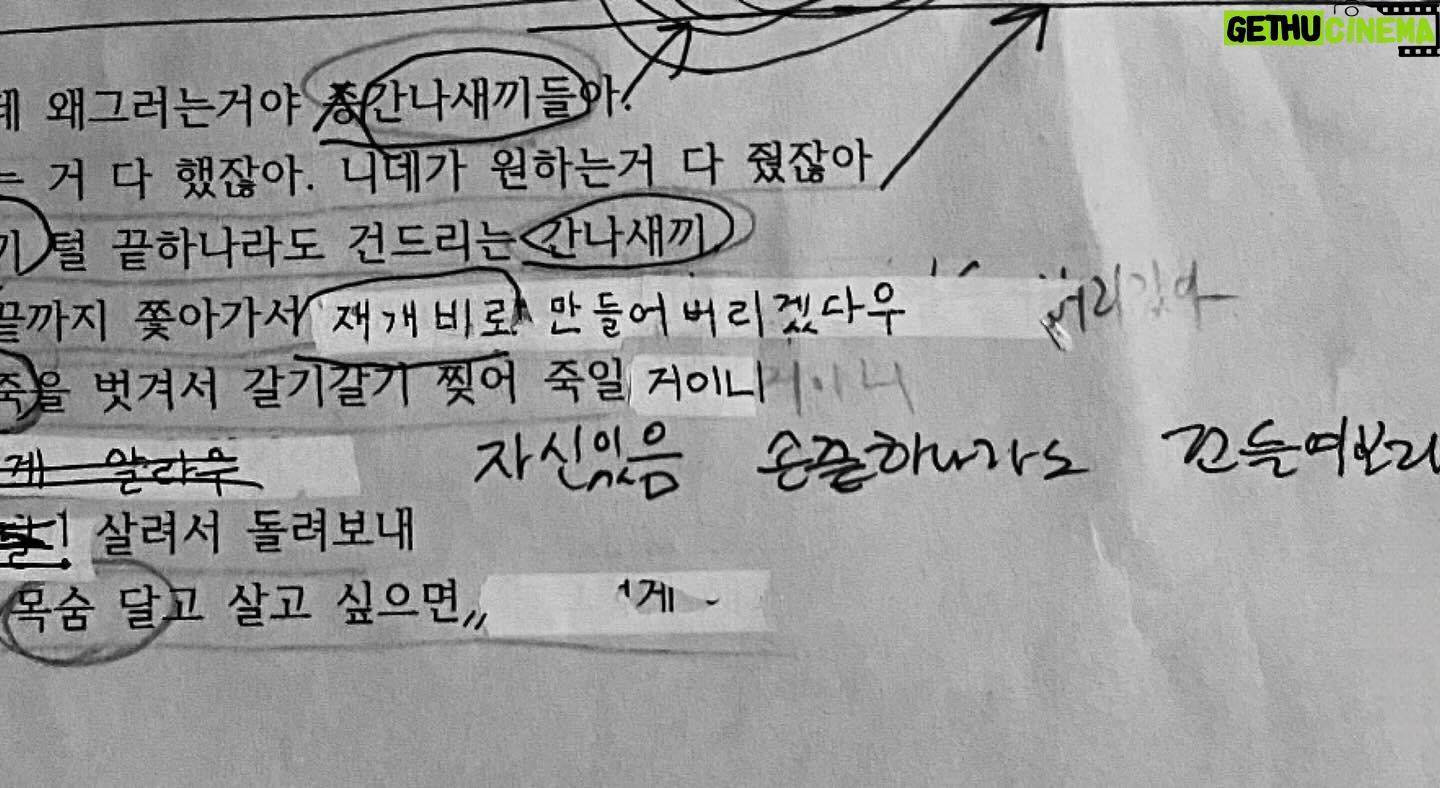 GETHU CINEMA
데 왜그러는거야 간나새끼들아.
는 거 다 했잖아. 니데가 원하는거 다 줬잖아
기 털 끝하나라도 건드리는 간나새끼
끝까지 쫓아가서 재개비로 만들어버리겠다우
죽을 벗겨서 갈기갈기 찢어 죽일 거이니 거이니
게 알라우 자신있음 손끝하나라도
살려서 돌려보내
목숨 달고 살고 싶으면,, 게